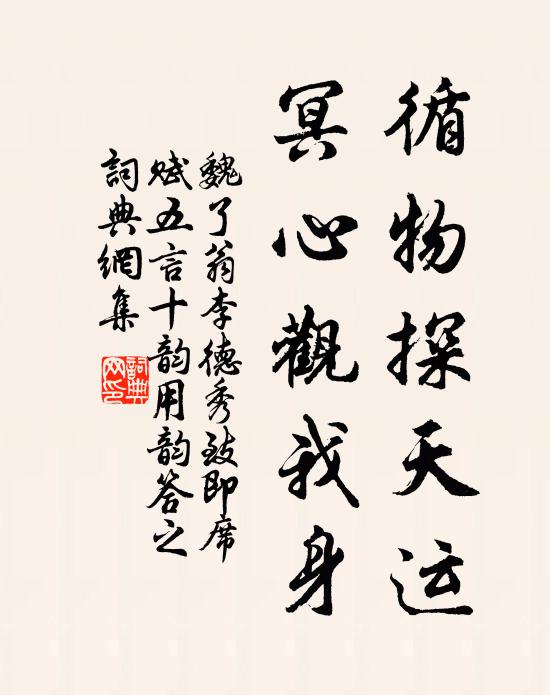 循物探天运
冥心觀我身
魏了翁李德秀致即席
赋五言十韵用韵答之
詞典網集
詞典
网印